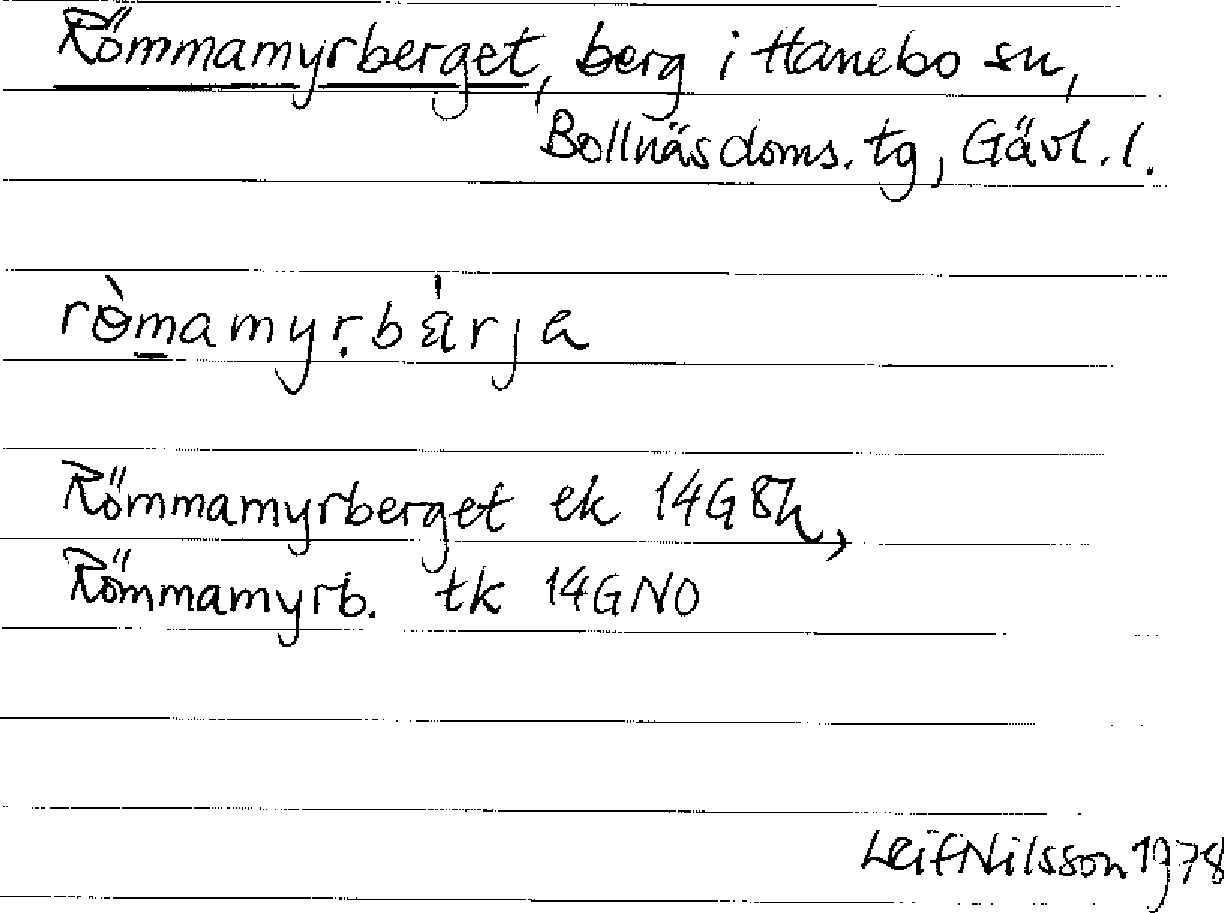 Römmamyrberget, berg i Hanebo sn,
Bollnäs doms. tg, Gävl. l.
rɵ̀m̲amyṛbá̈rja
Römmamyrberget ek 14G8h,
Römmamyrb. tk 14GNO
Leif Nilsson 1978